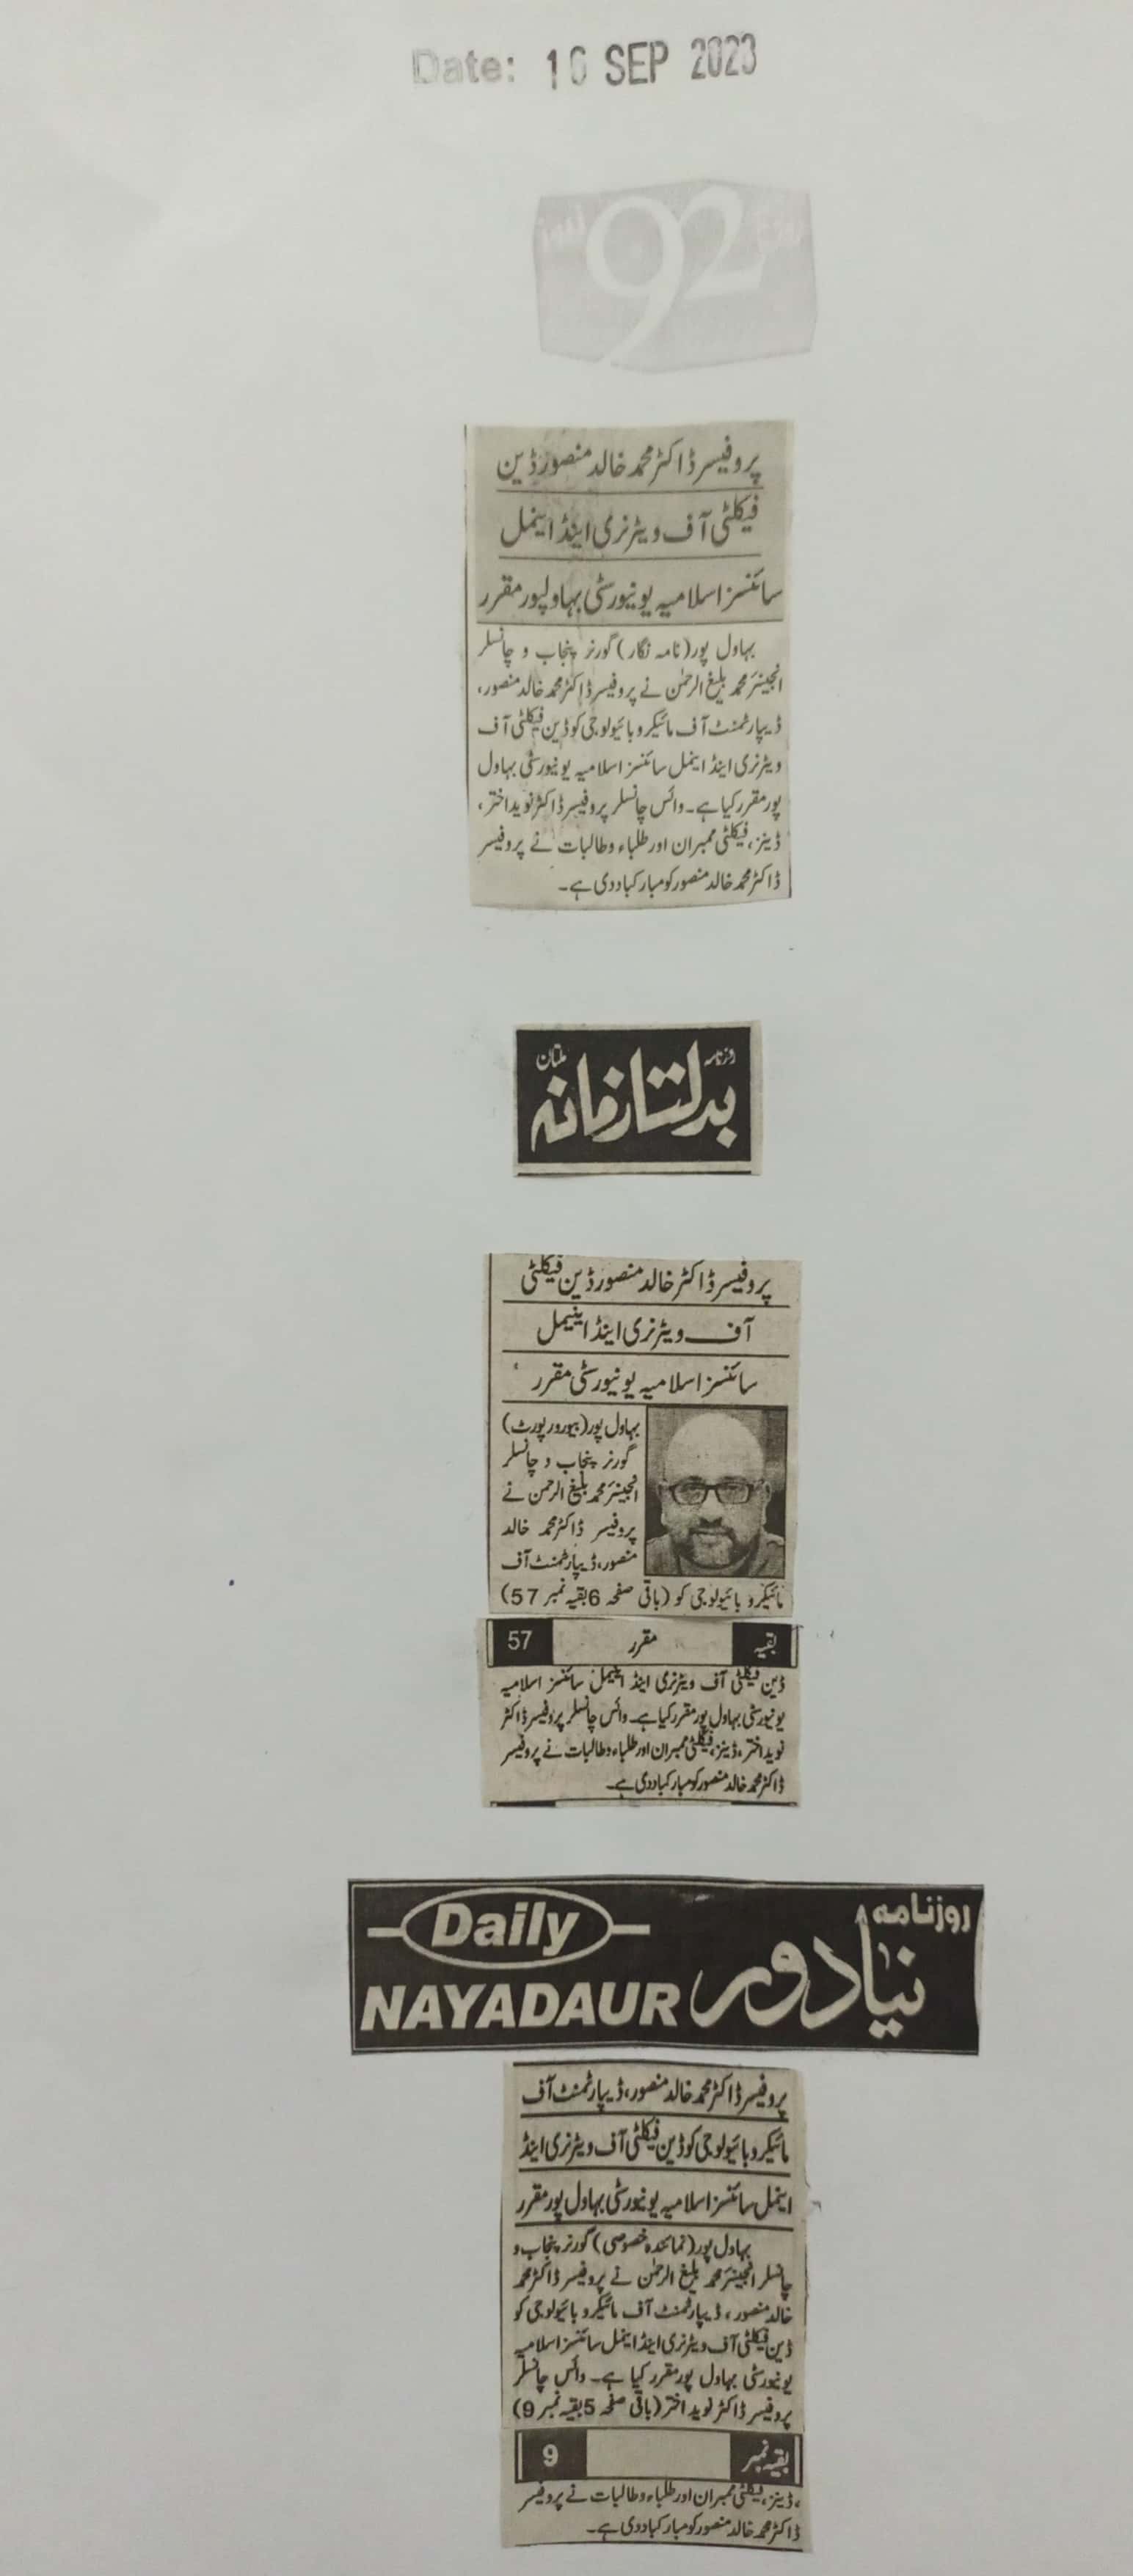 Date: 16 SEP 2023
92
پروفیسر ڈاکٹر محمد خالد منصور ڈین
فیکلٹی آف ویٹرنری اینڈ اینمل
سائنسز اسلامیہ یونیورسٹی بہاولپور مقرر
بہاول پور (نامہ نگار) گورنر پنجاب و چانسلر
انجینئر محمد بلیغ الرحمٰن نے پروفیسر ڈاکٹر محمد خالد منصور،
ڈیپارٹمنٹ آف مائیکرو بائیولوجی کو ڈین فیکلٹی آف
ویٹرنری اینڈ اینمل سائنسز اسلامیہ یونیورسٹی بہاول
پور مقرر کیا ہے۔ وائس چانسلر پروفیسر ڈاکٹر نوید اختر،
ڈینز، فیکلٹی ممبران اور طلباء وطالبات نے پروفیسر
ڈاکٹر محمد خالد منصور کو مبارکباد دی ہے۔
روزنامہ بدلتا زمانہ ملتان
پروفیسر ڈاکٹر خالد منصور ڈین فیکلٹی
آف ویٹرنری اینڈ اینیمل
سائنسز اسلامیہ یونیورسٹی مقرر
بہاول پور (بیورورپورٹ)
گورنر پنجاب و چانسلر
انجینئر محمد بلیغ الرحمن نے
پروفیسر ڈاکٹر محمد خالد
منصور، ڈیپارٹمنٹ آف
مائیکرو بائیولوجی کو (باقی صفحہ 6 بقیہ نمبر 57)
بقیہ مقرر 57
ڈین فیکلٹی آف ویٹرنری اینڈ اینیمل سائنسز اسلامیہ
یونیورسٹی بہاول پور مقرر کیا ہے۔ وائس چانسلر پروفیسر ڈاکٹر
نوید اختر، ڈینز، فیکلٹی ممبران اور طلباء وطالبات نے پروفیسر
ڈاکٹر محمد خالد منصور کو مبارکباد دی ہے۔
Daily
NAYADAUR
روزنامہ
نیا دور
پروفیسر ڈاکٹر محمد خالد منصور، ڈیپارٹمنٹ آف
مائیکرو بائیولوجی کو ڈین فیکلٹی آف ویٹرنری اینڈ
اینمل سائنسز اسلامیہ یونیورسٹی بہاول پور مقرر
بہاول پور (نمائندہ خصوصی) گورنر پنجاب و
چانسلر انجینئر محمد بلیغ الرحمٰن نے پروفیسر ڈاکٹر محمد
خالد منصور، ڈیپارٹمنٹ آف مائیکرو بائیولوجی کو
ڈین فیکلٹی آف ویٹرنری اینڈ اینمل سائنسز اسلامیہ
یونیورسٹی بہاول پور مقرر کیا ہے۔ وائس چانسلر
پروفیسر ڈاکٹر نوید اختر (باقی صفحہ 5 بقیہ نمبر 9)
بقیہ نمبر 9
، ڈینز، فیکلٹی ممبران اور طلباء وطالبات نے پروفیسر
ڈاکٹر محمد خالد منصور کو مبارکباد دی ہے۔